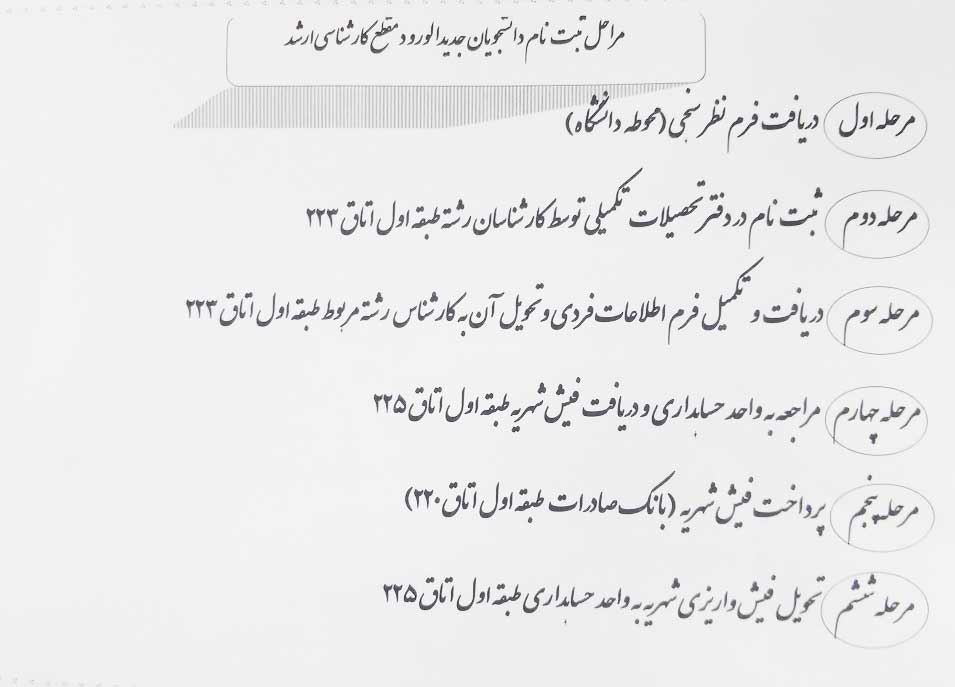 مراحل ثبت نام دانشجویان جدیدالورود مقطع کارشناسی ارشد
مرحله اول دریافت فرم نظر سنجی (محوطه دانشگاه)
مرحله دوم ثبت نام در دفتر تحصیلات تکمیلی توسط کارشناسان رشته طبقه اول اتاق ۲۲۳
مرحله سوم دریافت و تکمیل فرم اطلاعات فردی و تحویل آن به کارشناس رشته مربوط طبقه اول اتاق ۲۲۳
مرحله چهارم مراجعه به واحد حسابداری و دریافت فیش شهریه طبقه اول اتاق ۲۲۵
مرحله پنجم پرداخت فیش شهریه (بانک صادرات طبقه اول اتاق ۲۲۰)
مرحله ششم تحویل فیش واریزی شهریه به واحد حسابداری طبقه اول اتاق ۲۲۵